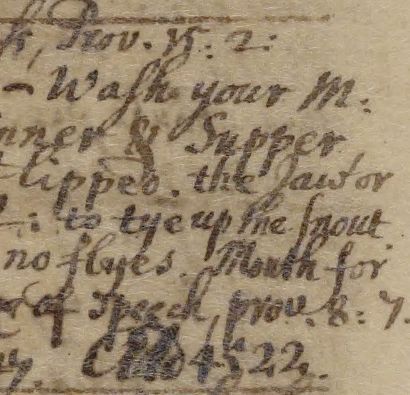 k, Prov. 15: 2:
- Wash your M:
inner & Supper
lipped. the Jaw or
: to tye up the snout
no flyes. Mouth for
of speech, prov. 8: 7.
4522.